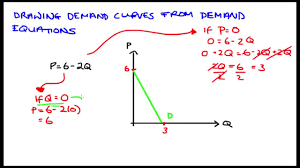 DRAWING DEMAND CURVES FROM DEMAND
EQUATIONS
P=6-2Q
If Q=0
P=6-2(0)
=6
P
6
D
3
Q
If P=0
0=6-2Q
0+2Q=6-2Q+2Q
2Q=6=3
2 2